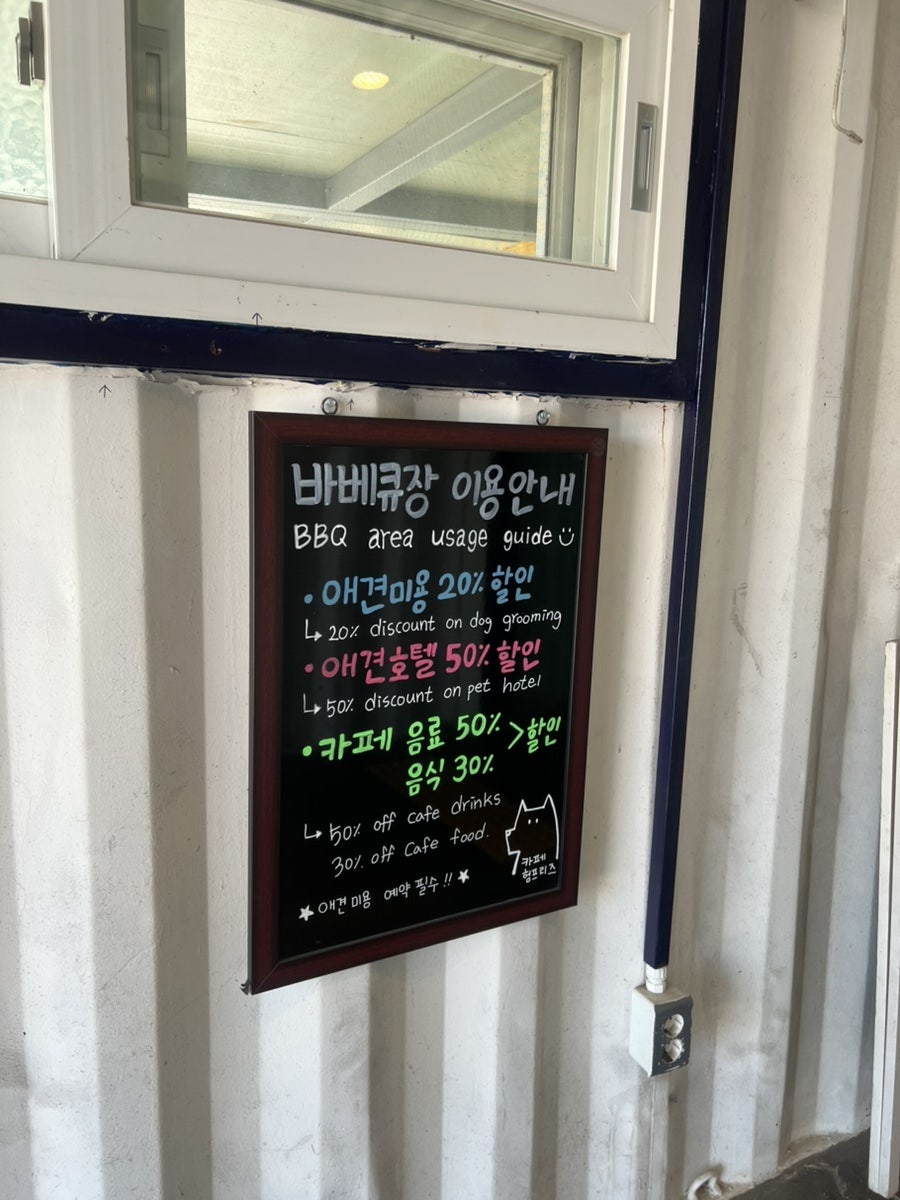 바베큐장 이용안내
BBQ area usage guide
• 애견미용 20% 할인
↳ 20% discount on dog grooming
• 애견호텔 50% 할인
↳ 50% discount on pet hotel
• 카페 음료 50% > 할인
음식 30%
↳ 50% off cafe drinks
30% off cafe food.
카페
험프리즈
★ 애견미용 예약 필수!! ★